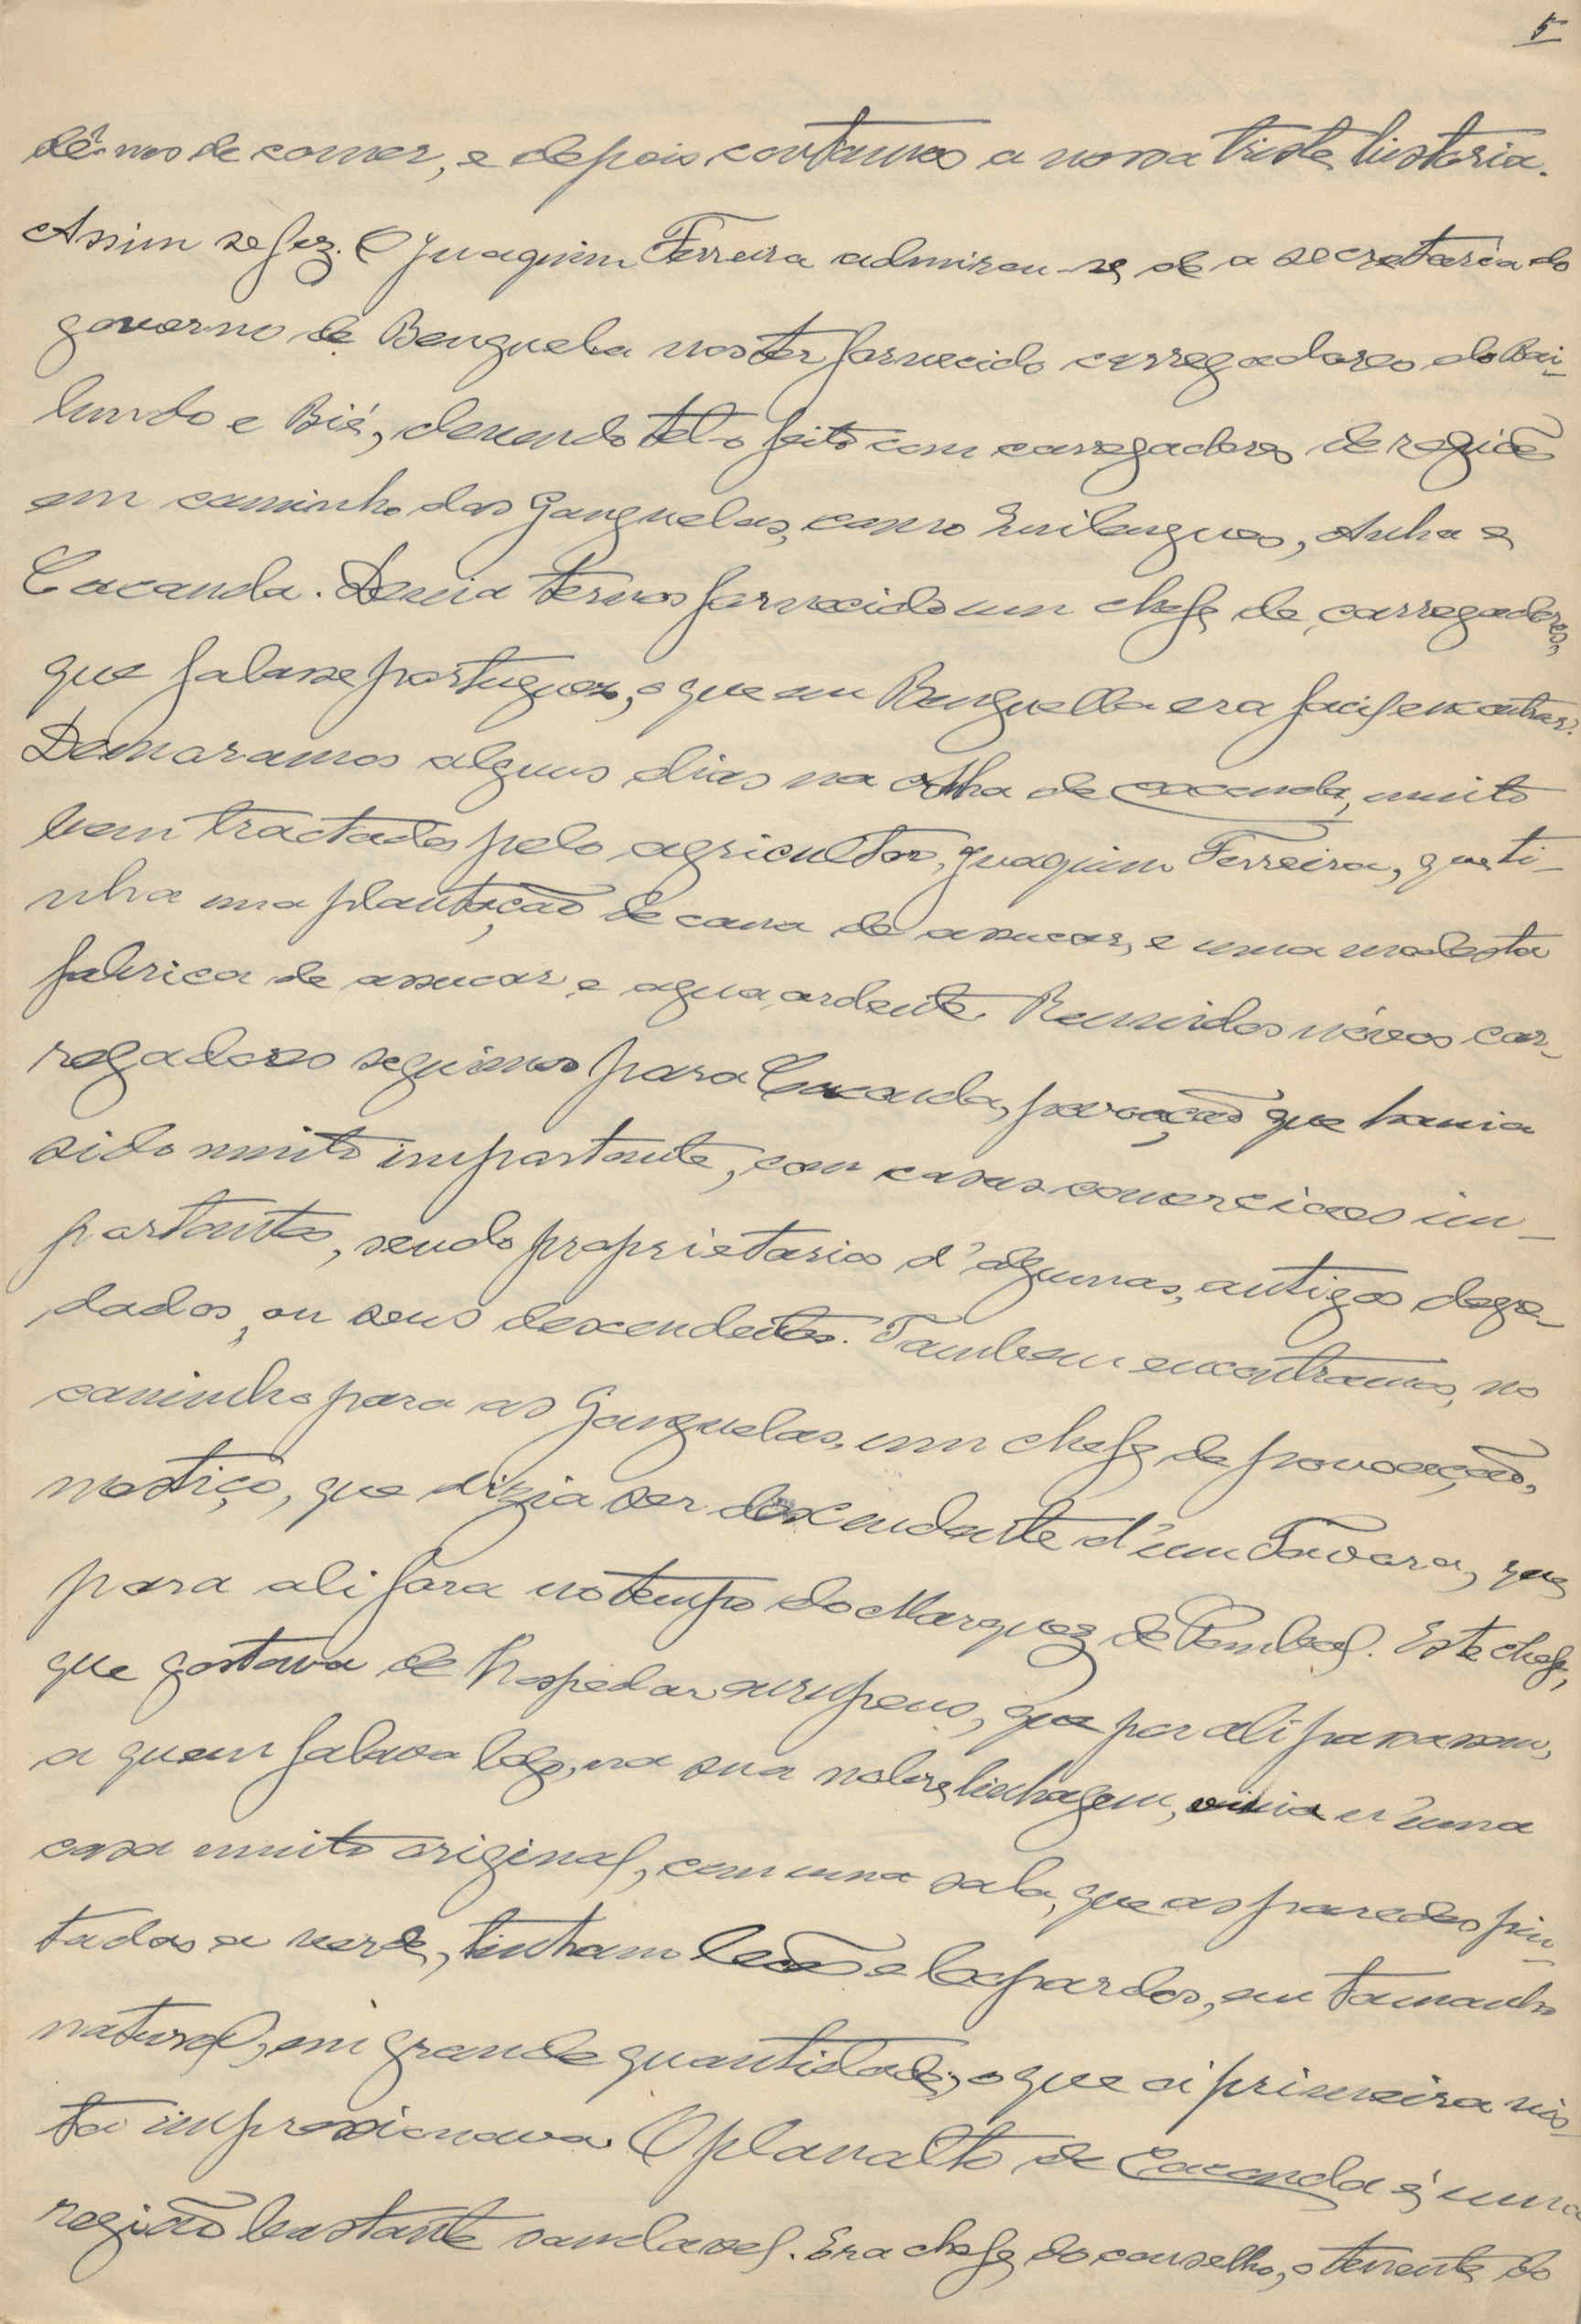 5
dê-nos de comer, e depois contamos a nossa triste historia.
Assim se fez. O Juaquim Ferreira admirou-se, de a secretaria do
governo de Benguela nos ter fornecido carregadores do Bai-
lundo e Bié, devendo tel-o feito com carregadores de região
em caminho das Ganguelas, como Quilengues, Anha e
Cacanda. Devia ternos fornecido um chefe de carregadores,
que falasse portuguez, o que em Benguella era facil encontrar.
Demoramos alguns dias na Anha de Cacanda, muito
bem tractados pelo agricultor, Juaquim Ferreira, que ti-
nha uma plantação de cana de assucar, e uma modesta
fabrica de assucar e agua ardente. Reunidos nóvos car-
regadores seguimos para Cacanda, povoação que havia
sido muito importante, com casas comerciaes im-
portantes, sendo proprietarios d'algumas, antigos degre-
dados, ou seus descendentes. Tambem encontramos, no
caminho para as Ganguelas, um chefe de povoação,
mestiço, que dizia ser descendente d'um Tavora, que
para ali fora no tempo do Marquez de Pombal. Este chefe,
que gostava de hospedar europeus, que por ali passassem,
a quem falava logo, na sua nobre linhagem, vivia n'uma
casa muito original, com uma sala, que as paredes pin-
tadas a verde, tinham leões e leopardos, em tamanho
natural, em grande quantidade, o que á primeira vis-
ta impressionava. O planalto de Cacanda é uma
região bastante saudavel. Era chefe do conselho, o tenente do